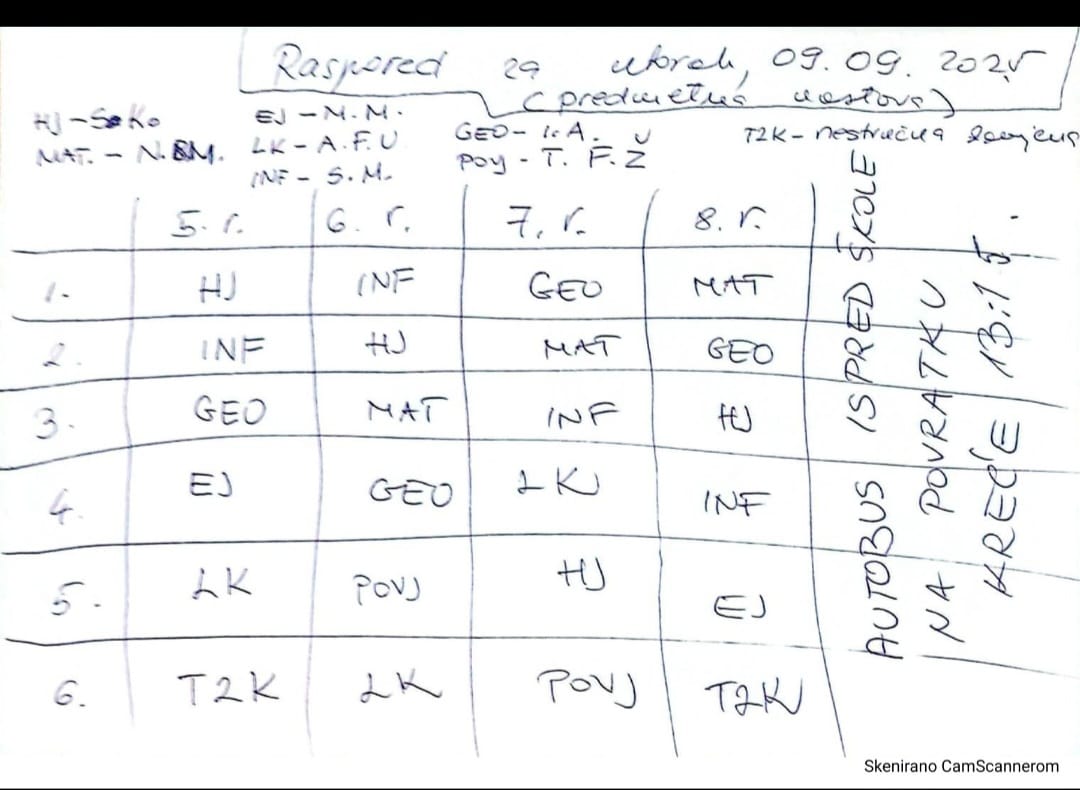 Raspored za utorak, 09.09.2025
(predmetna nastava)
HJ - SoKo
MAT. - N.BM.
EJ - M.M.
LK - A.F.U
INF - S.M.
GEO - I.A.
POVJ - T.F.Ž
TZK - nestručna zamjena
5. r. 6. r. 7. r. 8. r.
1. HJ INF GEO MAT
2. INF HJ MAT GEO
3. GEO MAT INF HJ
4. EJ GEO LK INF
5. LK POVJ HJ EJ
6. TZK LK POVJ TZK
AUTOBUS ISPRED ŠKOLE
NA POVRATKU
KREĆE 13:15.
Skenirano CamScannerom